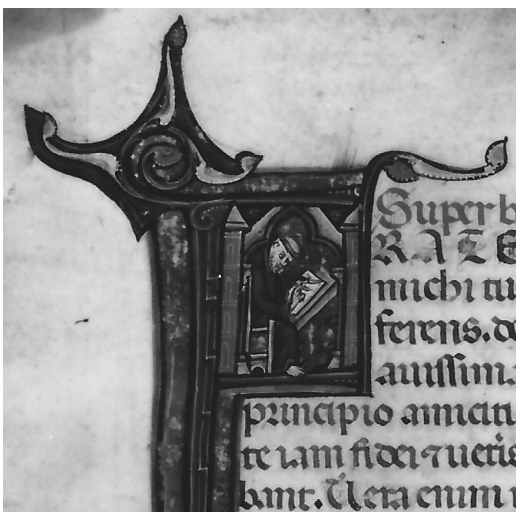 F
Super b
RATE
michi tu
ferens. de
auissima
principio amiciti
te iam fidei ⁊ uetis
bant. Uera enim